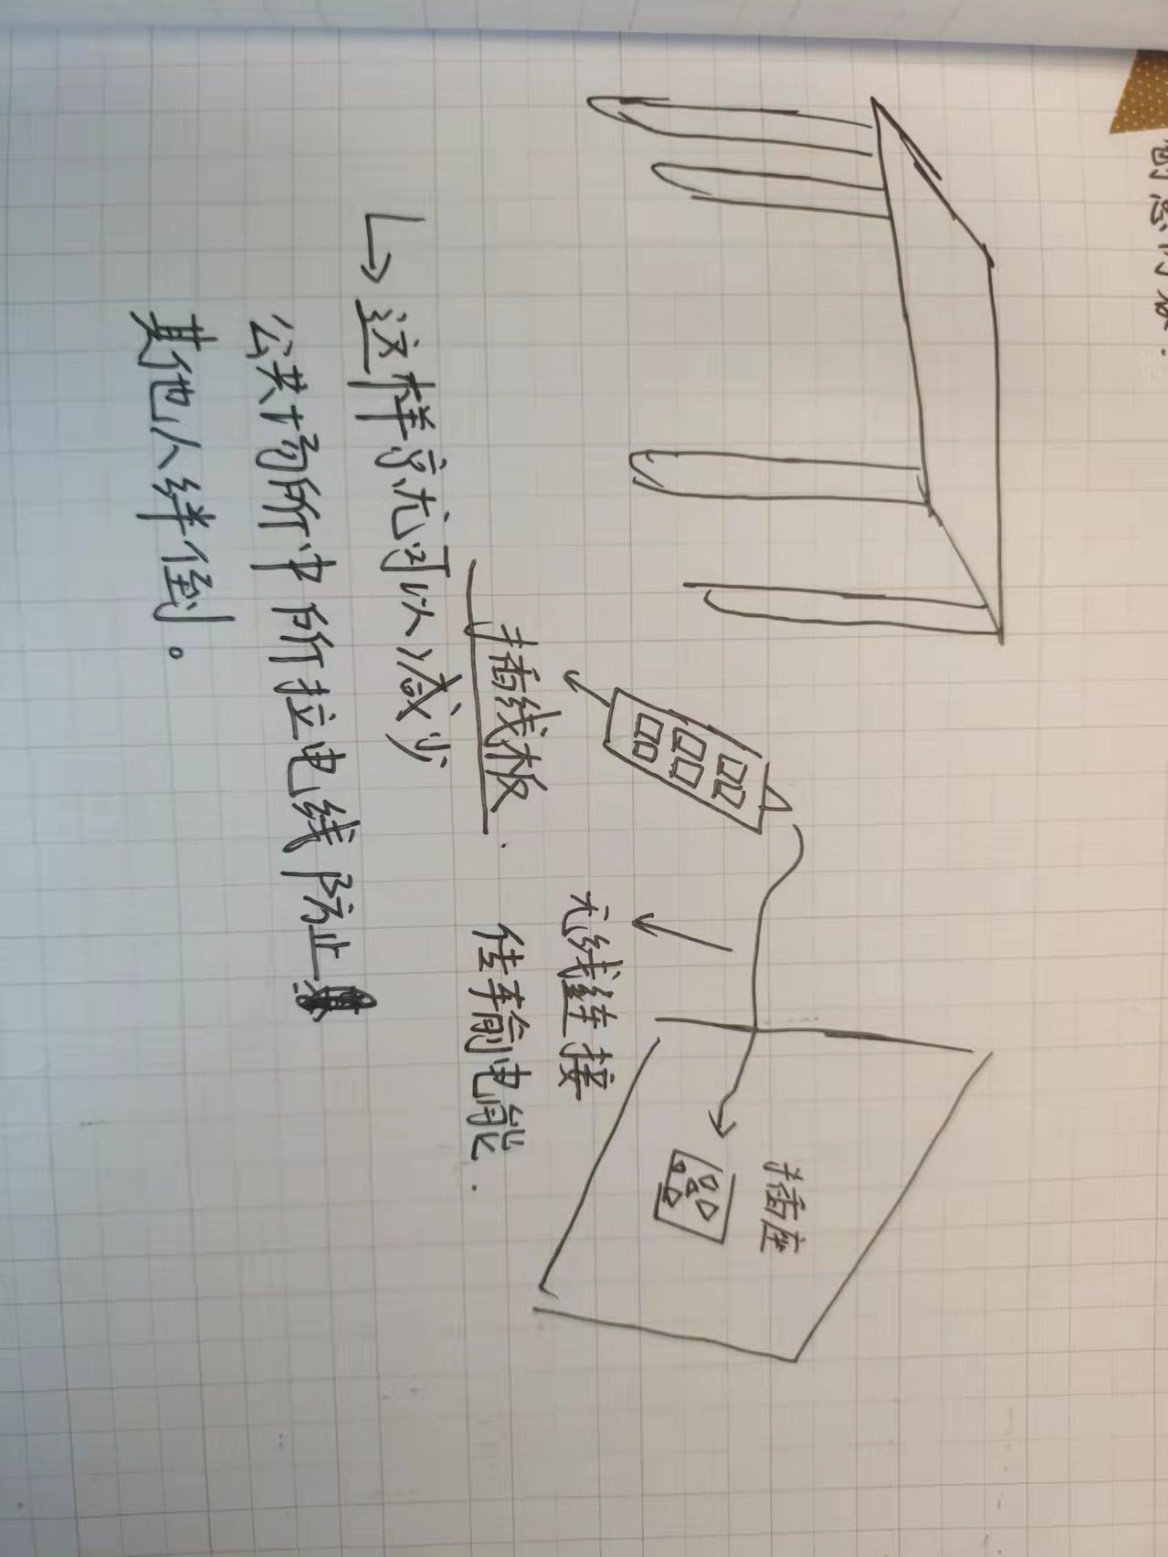 插座
无线连接
传输电能.
插线板.
这样就可以减少
公共场所中所拉电线防止
其他人绊倒。